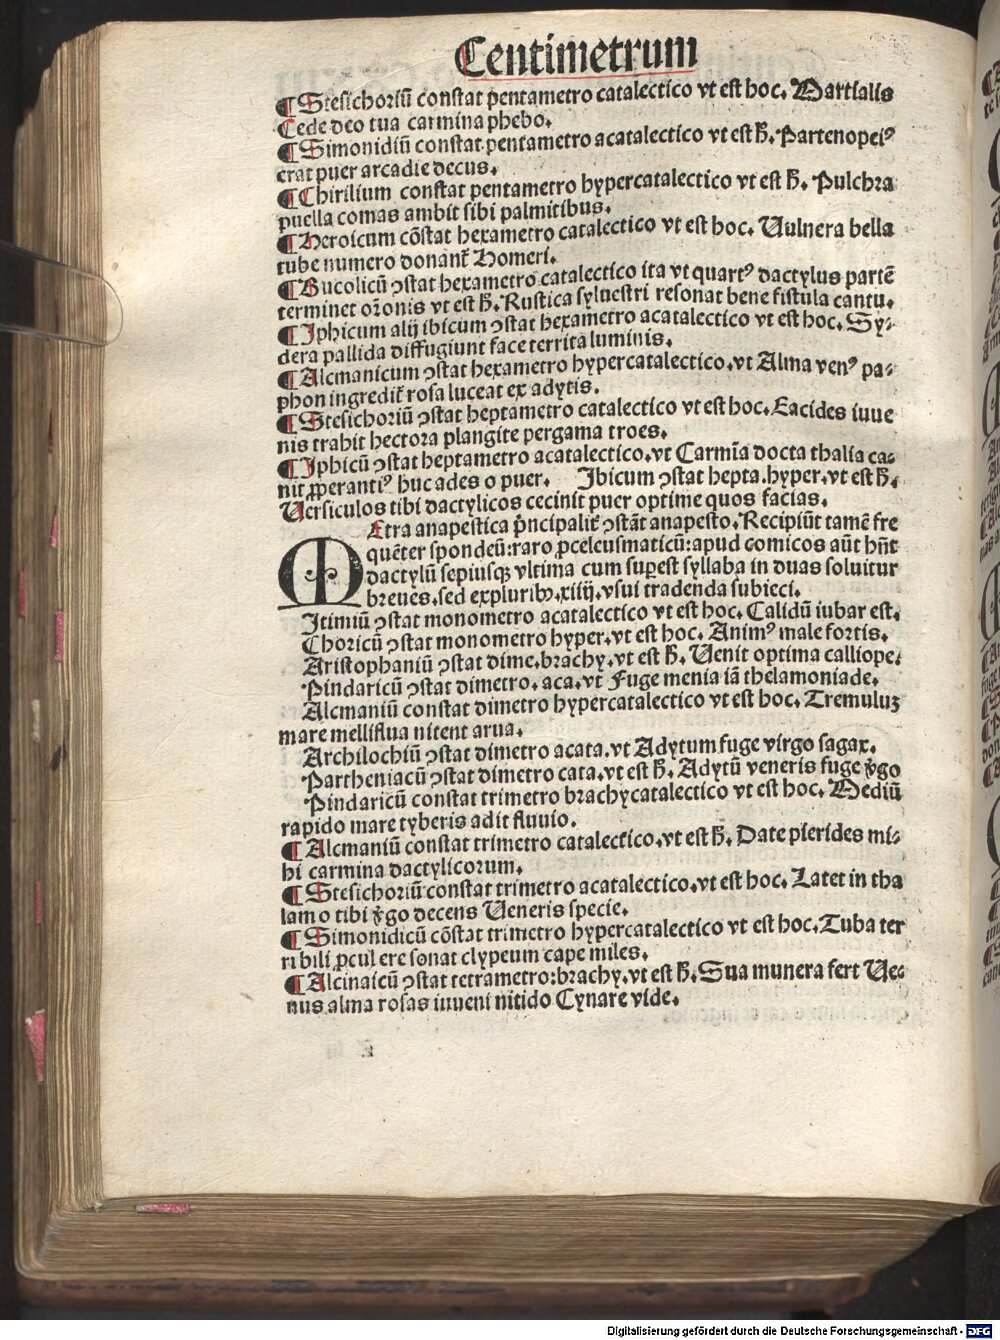 Centimetrum
¶ Stesichoriū constat pentametro catalectico vt est hoc. Martialis
Cede deo tua carmina phebo.
¶ Simonidiū constat pentametro acatalectico vt est h̄. Partenopeiꝰ
erat puer arcadie decus.
¶ Chirilium constat pentametro hypercatalectico vt est h̄. Pulchra
puella comas ambit sibi palmitibus.
¶ Heroicum cōstat hexametro catalectico vt est hoc. Uulnera bella
tube numero donant᷑ Homeri.
¶ Bucolicū ꝯstat hexametro catalectico ita vt quartꝰ dactylus partē
terminet or̄onis vt est h̄. Rustica syluestri resonat bene fistula cantu.
¶ Iphicum alij ibicum ꝯstat hexametro acatalectico vt est hoc. Sy⸗
dera pallida diffugiunt face territa luminis.
¶ Alcmanicum ꝯstat hexametro hypercatalectico. vt Alma venꝰ pa⸗
phon ingredit᷑ rosa luceat ex adytis.
¶ Stesichoriū ꝯstat heptametro catalectico vt est hoc. Eacides iuue
nis trahit hectora plangite pergama troes.
¶ Iphicū ꝯstat heptametro acatalectico. vt Carmīa docta thalia ca⸗
nit ꝓperantiꝰ huc ades o puer. Ibicum ꝯstat hepta. hyper. vt est h̄.
Uersiculos tibi dactylicos cecinit puer optime quos facias.
MEtra anapestica p̄ncipalit᷑ ꝯstāt anapesto. Recipiūt tamē fre
quēter spondeū: raro ꝓceleusmaticū: apud comicos aūt hn̄t
dactylū sepiusqꝫ vltima cum suꝑest syllaba in duas soluitur
breues. sed expluribꝰ. xiiij. vsui tradenda subieci.
Itimiū ꝯstat monometro acatalectico vt est hoc. Calidū iubar est.
Choricū ꝯstat monometro hyper. vt est hoc. Animꝰ male fortis.
Aristophaniū ꝯstat dime. brachy. vt est h̄. Uenit optima calliope.
Pindaricū ꝯstat dimetro. aca. vt Fuge menia iā thelamoniade.
Alcmaniū constat dimetro hypercatalectico vt est hoc. Tremuluꝫ
mare melliflua nitent arua.
Archilochiū ꝯstat dimetro acata. vt Adytum fuge virgo sagax.
Partheniacū ꝯstat dimetro cata. vt est h̄. Adytū veneris fuge v̄go
Pindaricū constat trimetro brachycatalectico vt est hoc. Mediū
rapido mare tyberis adit fluuio.
¶ Alcmaniū constat trimetro catalectico. vt est h̄. Date pierides mi⸗
hi carmina dactylicorum.
¶ Stesichoriū constat trimetro acatalectico. vt est hoc. Latet in tha
lam o tibi v̄go decens Ueneris specie.
¶ Simonidicū cōstat trimetro hypercatalectico vt est hoc. Tuba ter
ri bili ꝓcul ere sonat clypeum cape miles.
¶ Alcinaicū ꝯstat tetrametro: brachy. vt est h̄. Sua munera fert Ue⸗
nus alma rosas iuueni nitido Cynare vide.
Digitalisierung gefördert durch die Deutsche Forschungsgemeinschaft - DFG